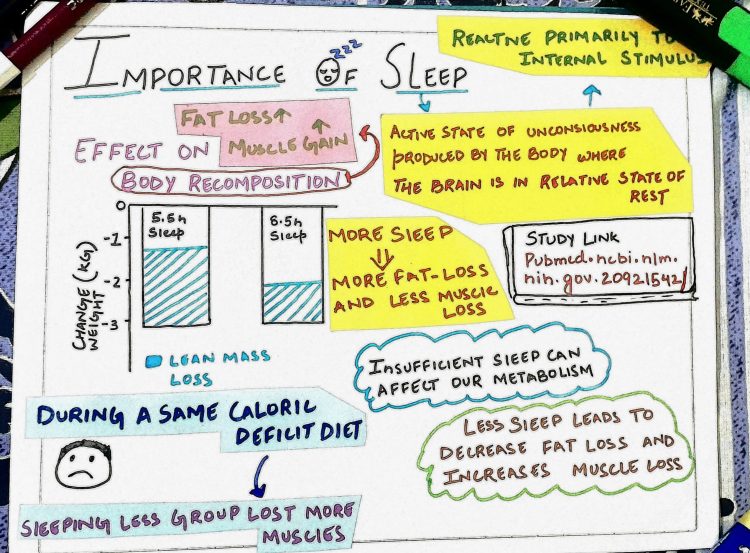 IMPORTANCE OF SLEEP
zzz
REACTINE PRIMARILY TO
INTERNAL STIMULUS
FAT LOSS↑
MUSCLE GAIN ↑
EFFECT ON
BODY RECOMPOSITION
ACTIVE STATE OF UNCONSIOUSNESS
PRODUCED BY THE BODY WHERE
THE BRAIN IS IN RELATIVE STATE OF
REST
CHANGE (KG)
WEIGHT
0
-1
-2
-3
5.5h
Sleep
8.5h
Sleep
LEAN MASS
LOSS
MORE SLEEP
⇓
MORE FAT-LOSS
AND LESS MUSCLE
LOSS
STUDY LINK
Pubmed.ncbi.nlm.
nih.gov.20921542/
INSUFFICIENT SLEEP CAN
AFFECT OUR METABOLISM
DURING A SAME CALORIC
DEFICIT DIET
LESS SLEEP LEADS TO
DECREASE FAT LOSS AND
INCREASES MUSCLE LOSS
SLEEPING LESS GROUP LOST MORE
MUSCLES